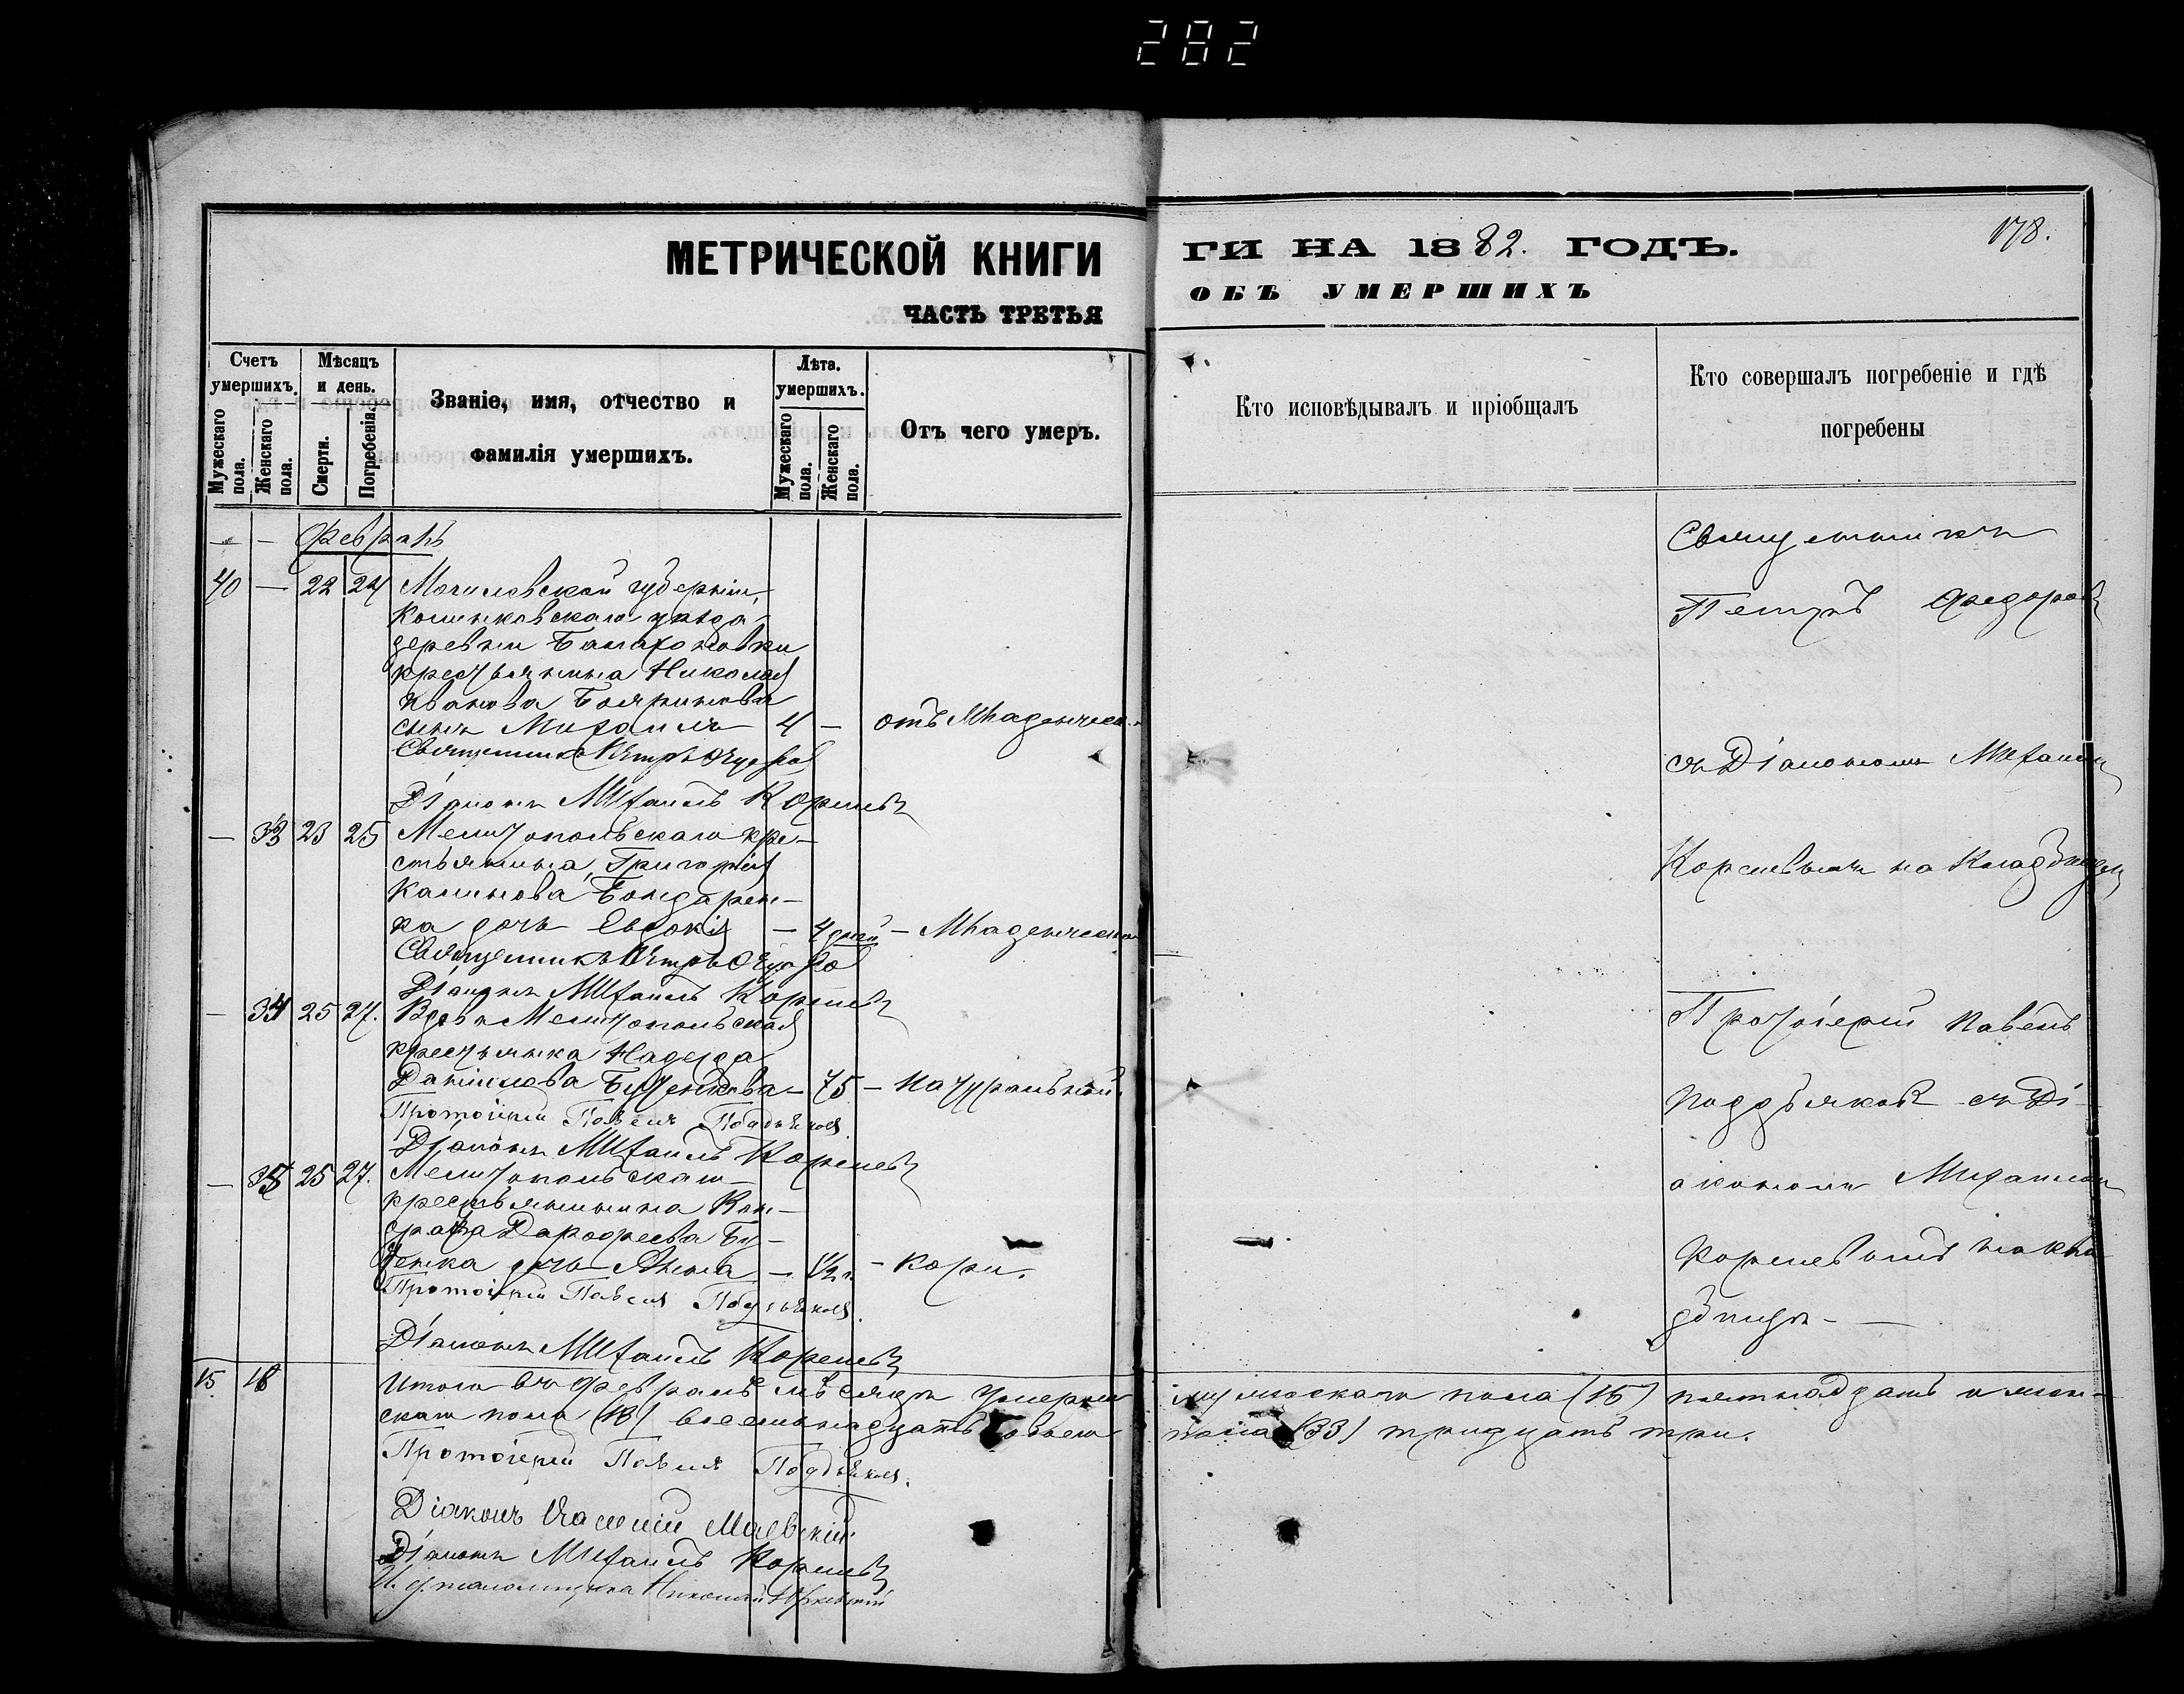 282
МЕТРИЧЕСКОЙ КНИГИ
ЧАСТЬ ТРЕТЬЯ
ГИ НА 1882. ГОДЪ.
178.
ОБЪ УМЕРШИХЪ
Счетъ умершихъ.
Мужескаго пола.
Женскаго пола.
Мѣсяцъ и день.
Смерти.
Погребенія.
Званіе, имя, отчество и
фамилія умершихъ.
Лѣта. умершихъ.
Мужескаго пола.
Женскаго пола.
Отъ чего умеръ.
Кто исповѣдывалъ и пріобщалъ
Кто совершалъ погребеніе и гдѣ
погребены
— — Февраль
40 — 22 24 Могилевской губерніи,
уѣзда
деревни
крестьянина Николая
Иванова
сынъ Михаилъ 4 — отъ Младенческ.
Священникъ Петръ Федоровъ
Діаконъ Михаилъ Кореневъ
— 33 23 25 Мелитопольскаго кре-
стьянина, Григорія
Бондарен-
ка дочь Евдокія — 4 дней — Младенческ
Священникъ Петръ Федоровъ
Діаконъ Михаилъ Кореневъ
— 34 25 27. Вдова Мелитопольская
крестьянка Надежда
Данилова — 75 — Натуральной.
Протоіерей Павелъ Поддьяковъ.
Діаконъ Михаилъ Кореневъ
— 35 25 27. Мелитопольскаго
крестьянина Кон-
драта Дорофеева Бу-
тенка дочь Анна — 1/2 г. — Кори.
Протоіерей Павелъ Поддьяковъ.
Діаконъ Михаилъ Кореневъ
15. 18 Итого въ Февралѣ мѣсяцѣ умерло
скаго пола (18) восемнадцать обоего
Протоіерей Павелъ Поддьяковъ.
Діаконъ Маевскій
Діаконъ Михаилъ Кореневъ
И. д. псаломщика Николай
Священникъ
Петръ Федоровъ
съ Діакономъ Михаиломъ
Кореневымъ на Кладбищѣ
Протоіерей Павелъ
Поддьяковъ съ Ді-
акономъ Михаиломъ
Кореневымъ на кла
дбищѣ —
мужескаго пола (15) пятнадцать и жен-
пола (33) тридцать три.